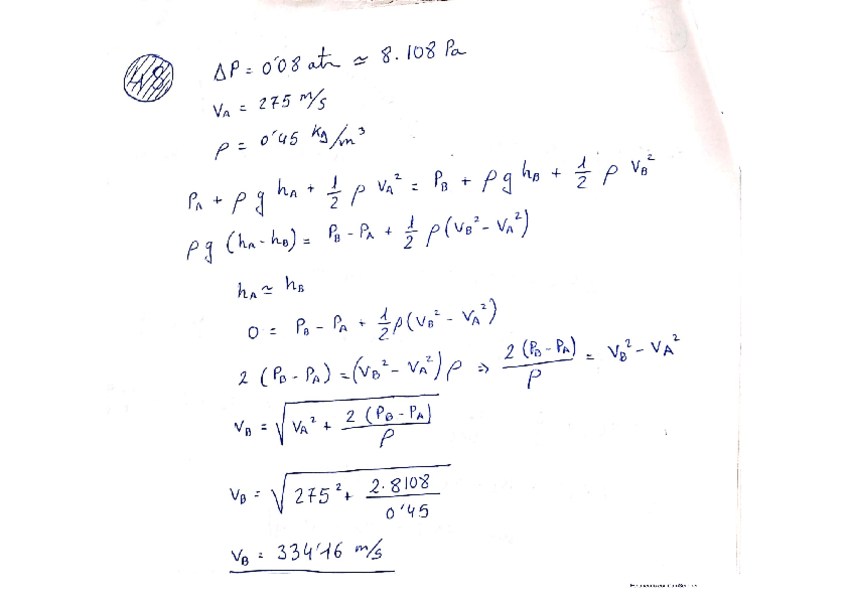 48
ΔP = 0'08 atm ≃ 8.108 Pa
V_A = 275 m/s
ρ = 0'45 kg/m³
P_A + ρ g h_A + 1/2 ρ V_A² = P_B + ρ g h_B + 1/2 ρ V_B²
ρ g (h_A - h_B) = P_B - P_A + 1/2 ρ (V_B² - V_A²)
h_A ≃ h_B
0 = P_B - P_A + 1/2 ρ (V_B² - V_A²)
2 (P_B - P_A) = (V_B² - V_A²) ρ ⇒ 2 (P_B - P_A) / ρ = V_B² - V_A²
V_B = √(V_A² + 2 (P_B - P_A) / ρ)
V_B = √(275² + 2·8108 / 0'45)
V_B = 334'16 m/s